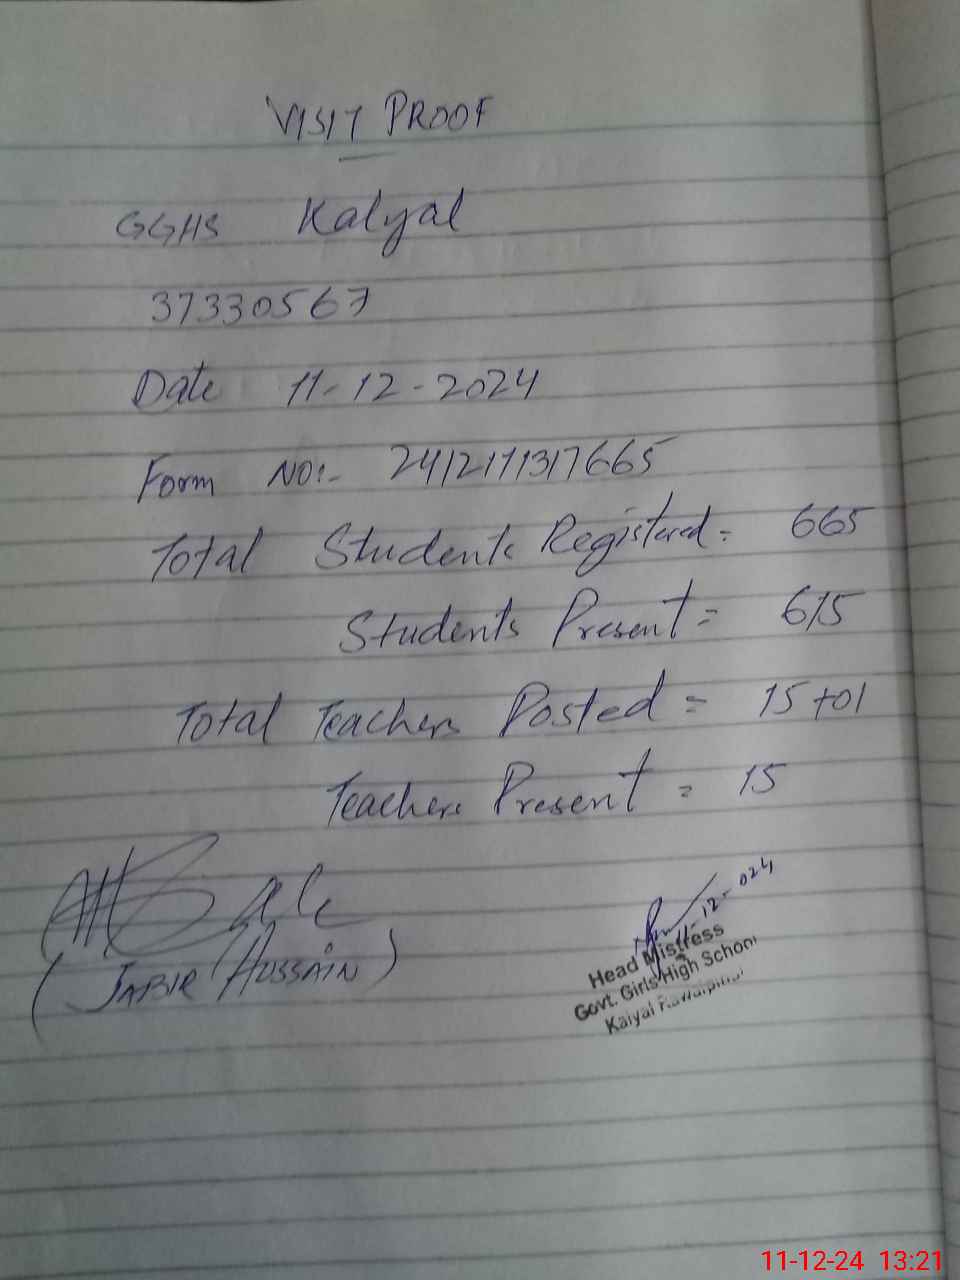 VISIT PROOF
GGHS Kalyal
37330567
Date 11-12-2024
Form NO:- 2412111317665
Total Students Registered = 665
Students Present = 615
Total Teachers Posted = 15+01
Teachers Present = 15
(JABIR HUSSAIN)
Head Mistress
Govt. Girls High School
Kalyal Rawalpindi
11-12-24 13:21